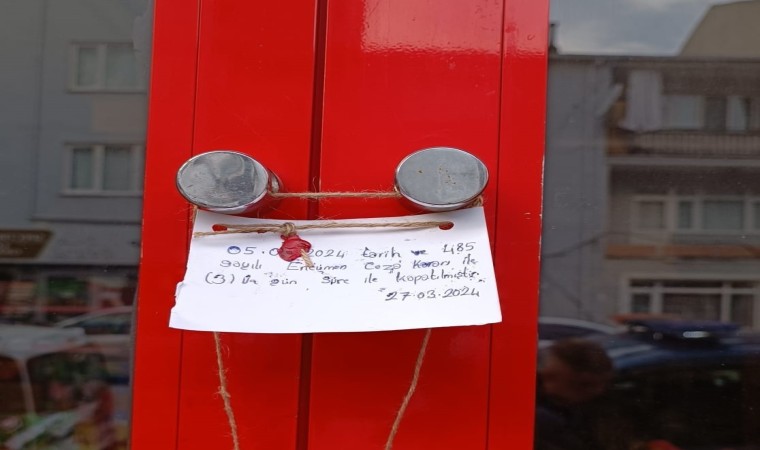 05.0 2024 tarih ve 485
sayılı Encümen Ceza Kararı ile
(3) gün süre ile kapatılmıştır.
27.03.2024